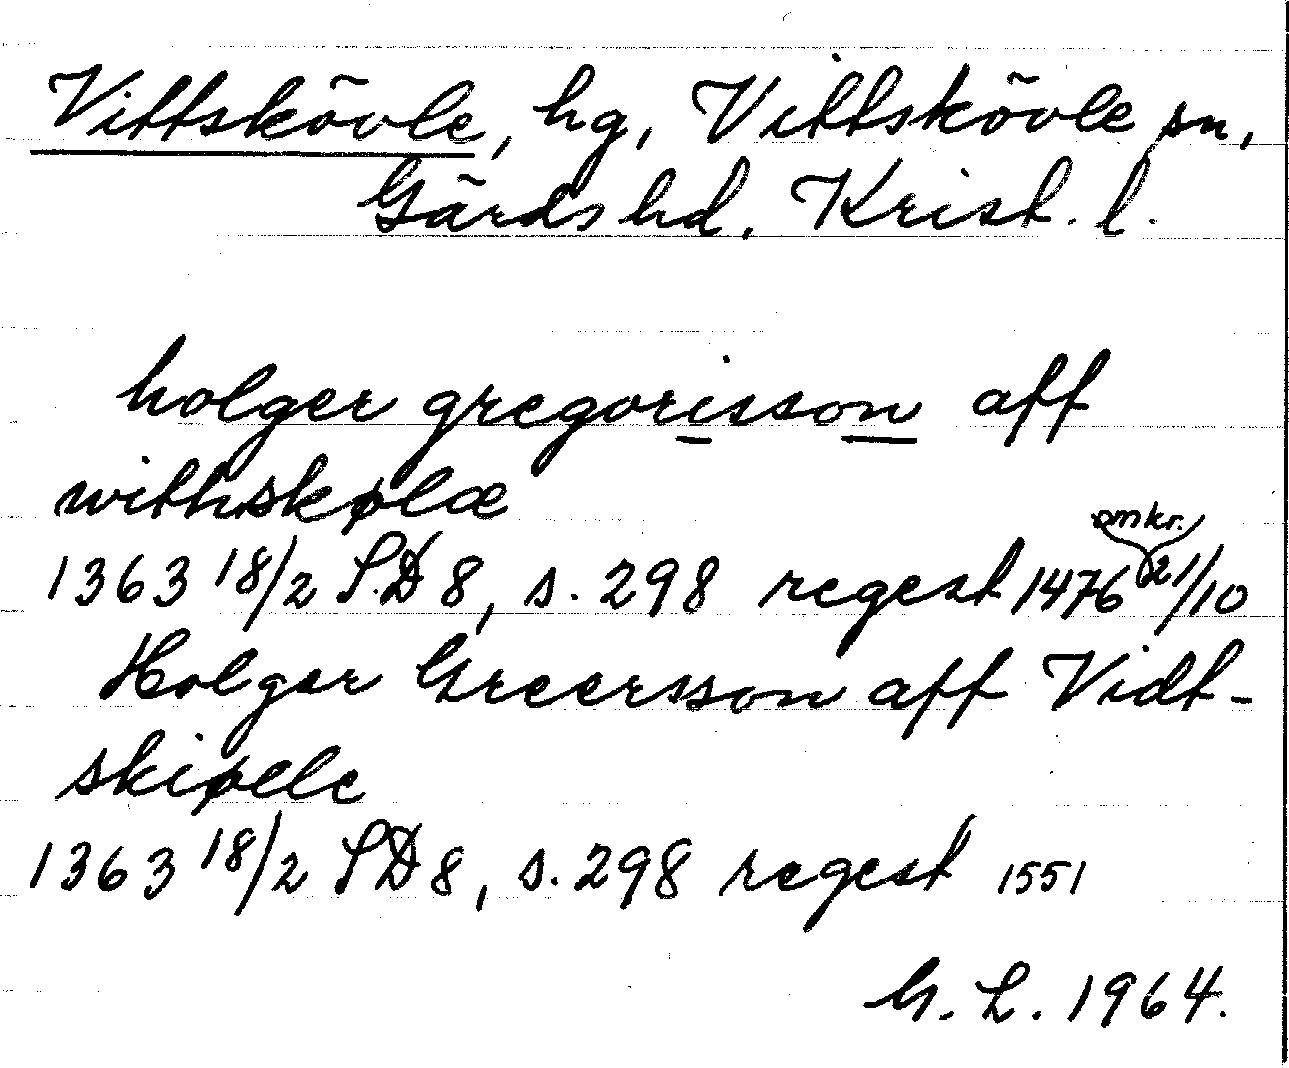 Vittskövle, hg, Vittskövle sn,
Gärds hd, Krist. l.
holger gregorisson aff
withskølæ
1363 18/2 SD 8, s. 298 regest 1476 omkr. 21/10
Holger Greersson aff Vidt-
skiøele
1363 18/2 SD 8, s. 298 regest 1551
G. L. 1964.